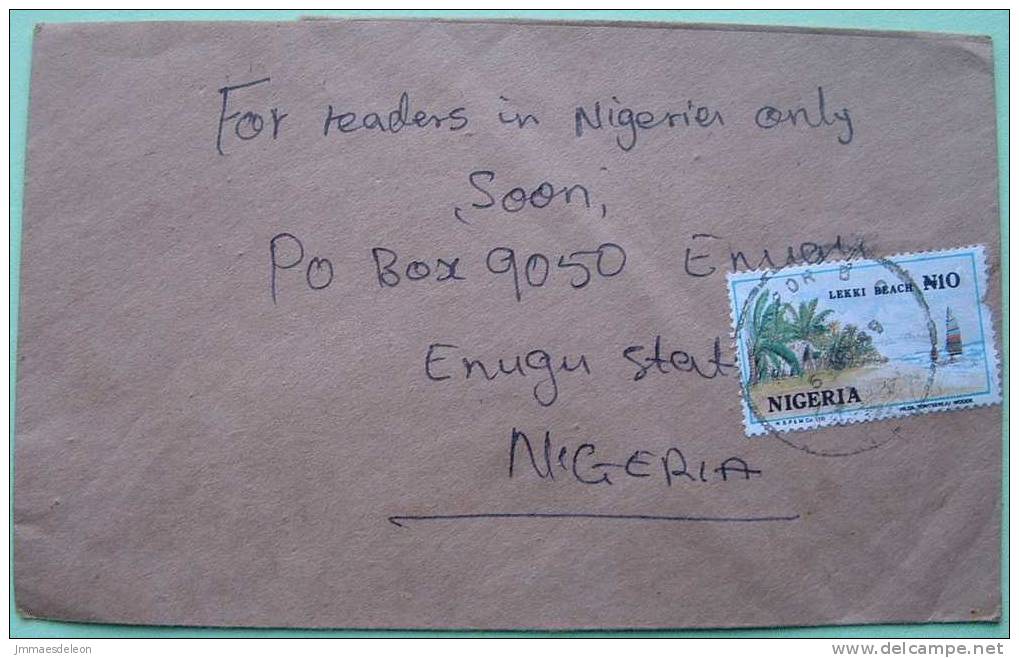 For readers in Nigeria only
Soon,
PO Box 9050 Enugu
Enugu stat
NIGERIA
LEKKI BEACH ₦10
NIGERIA
N.S.P.& M. Co. LTD.
Jmmaesdeleon
delcampe.net